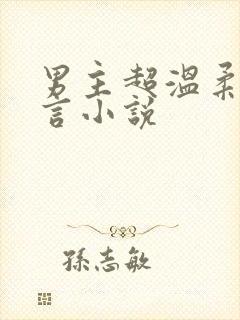 男主超溫柔
言小說
孫志敏